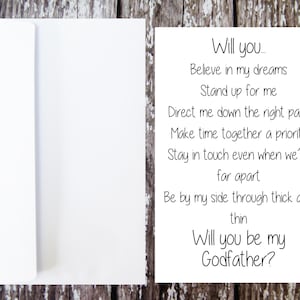 Will you...
Believe in my dreams
Stand up for me
Direct me down the right pa
Make time together a priorit
Stay in touch even when we'
far apart
Be by my side through thick a
thin
Will you be my
Godfather?